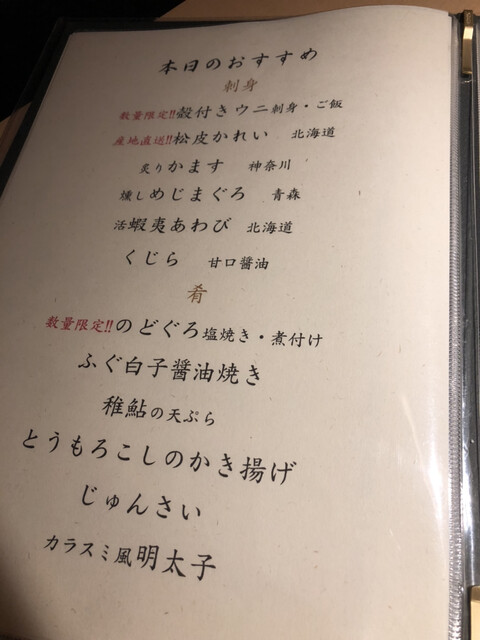 本日のおすすめ
刺身
数量限定!!殻付きウニ刺身・ご飯
産地直送!!松皮かれい 北海道
炙りかます 神奈川
燻しめじまぐろ 青森
活蝦夷あわび 北海道
くじら 甘口醤油
肴
数量限定!!のどぐろ塩焼き・煮付け
ふぐ白子醤油焼き
稚鮎の天ぷら
とうもろこしのかき揚げ
じゅんさい
カラスミ風明太子